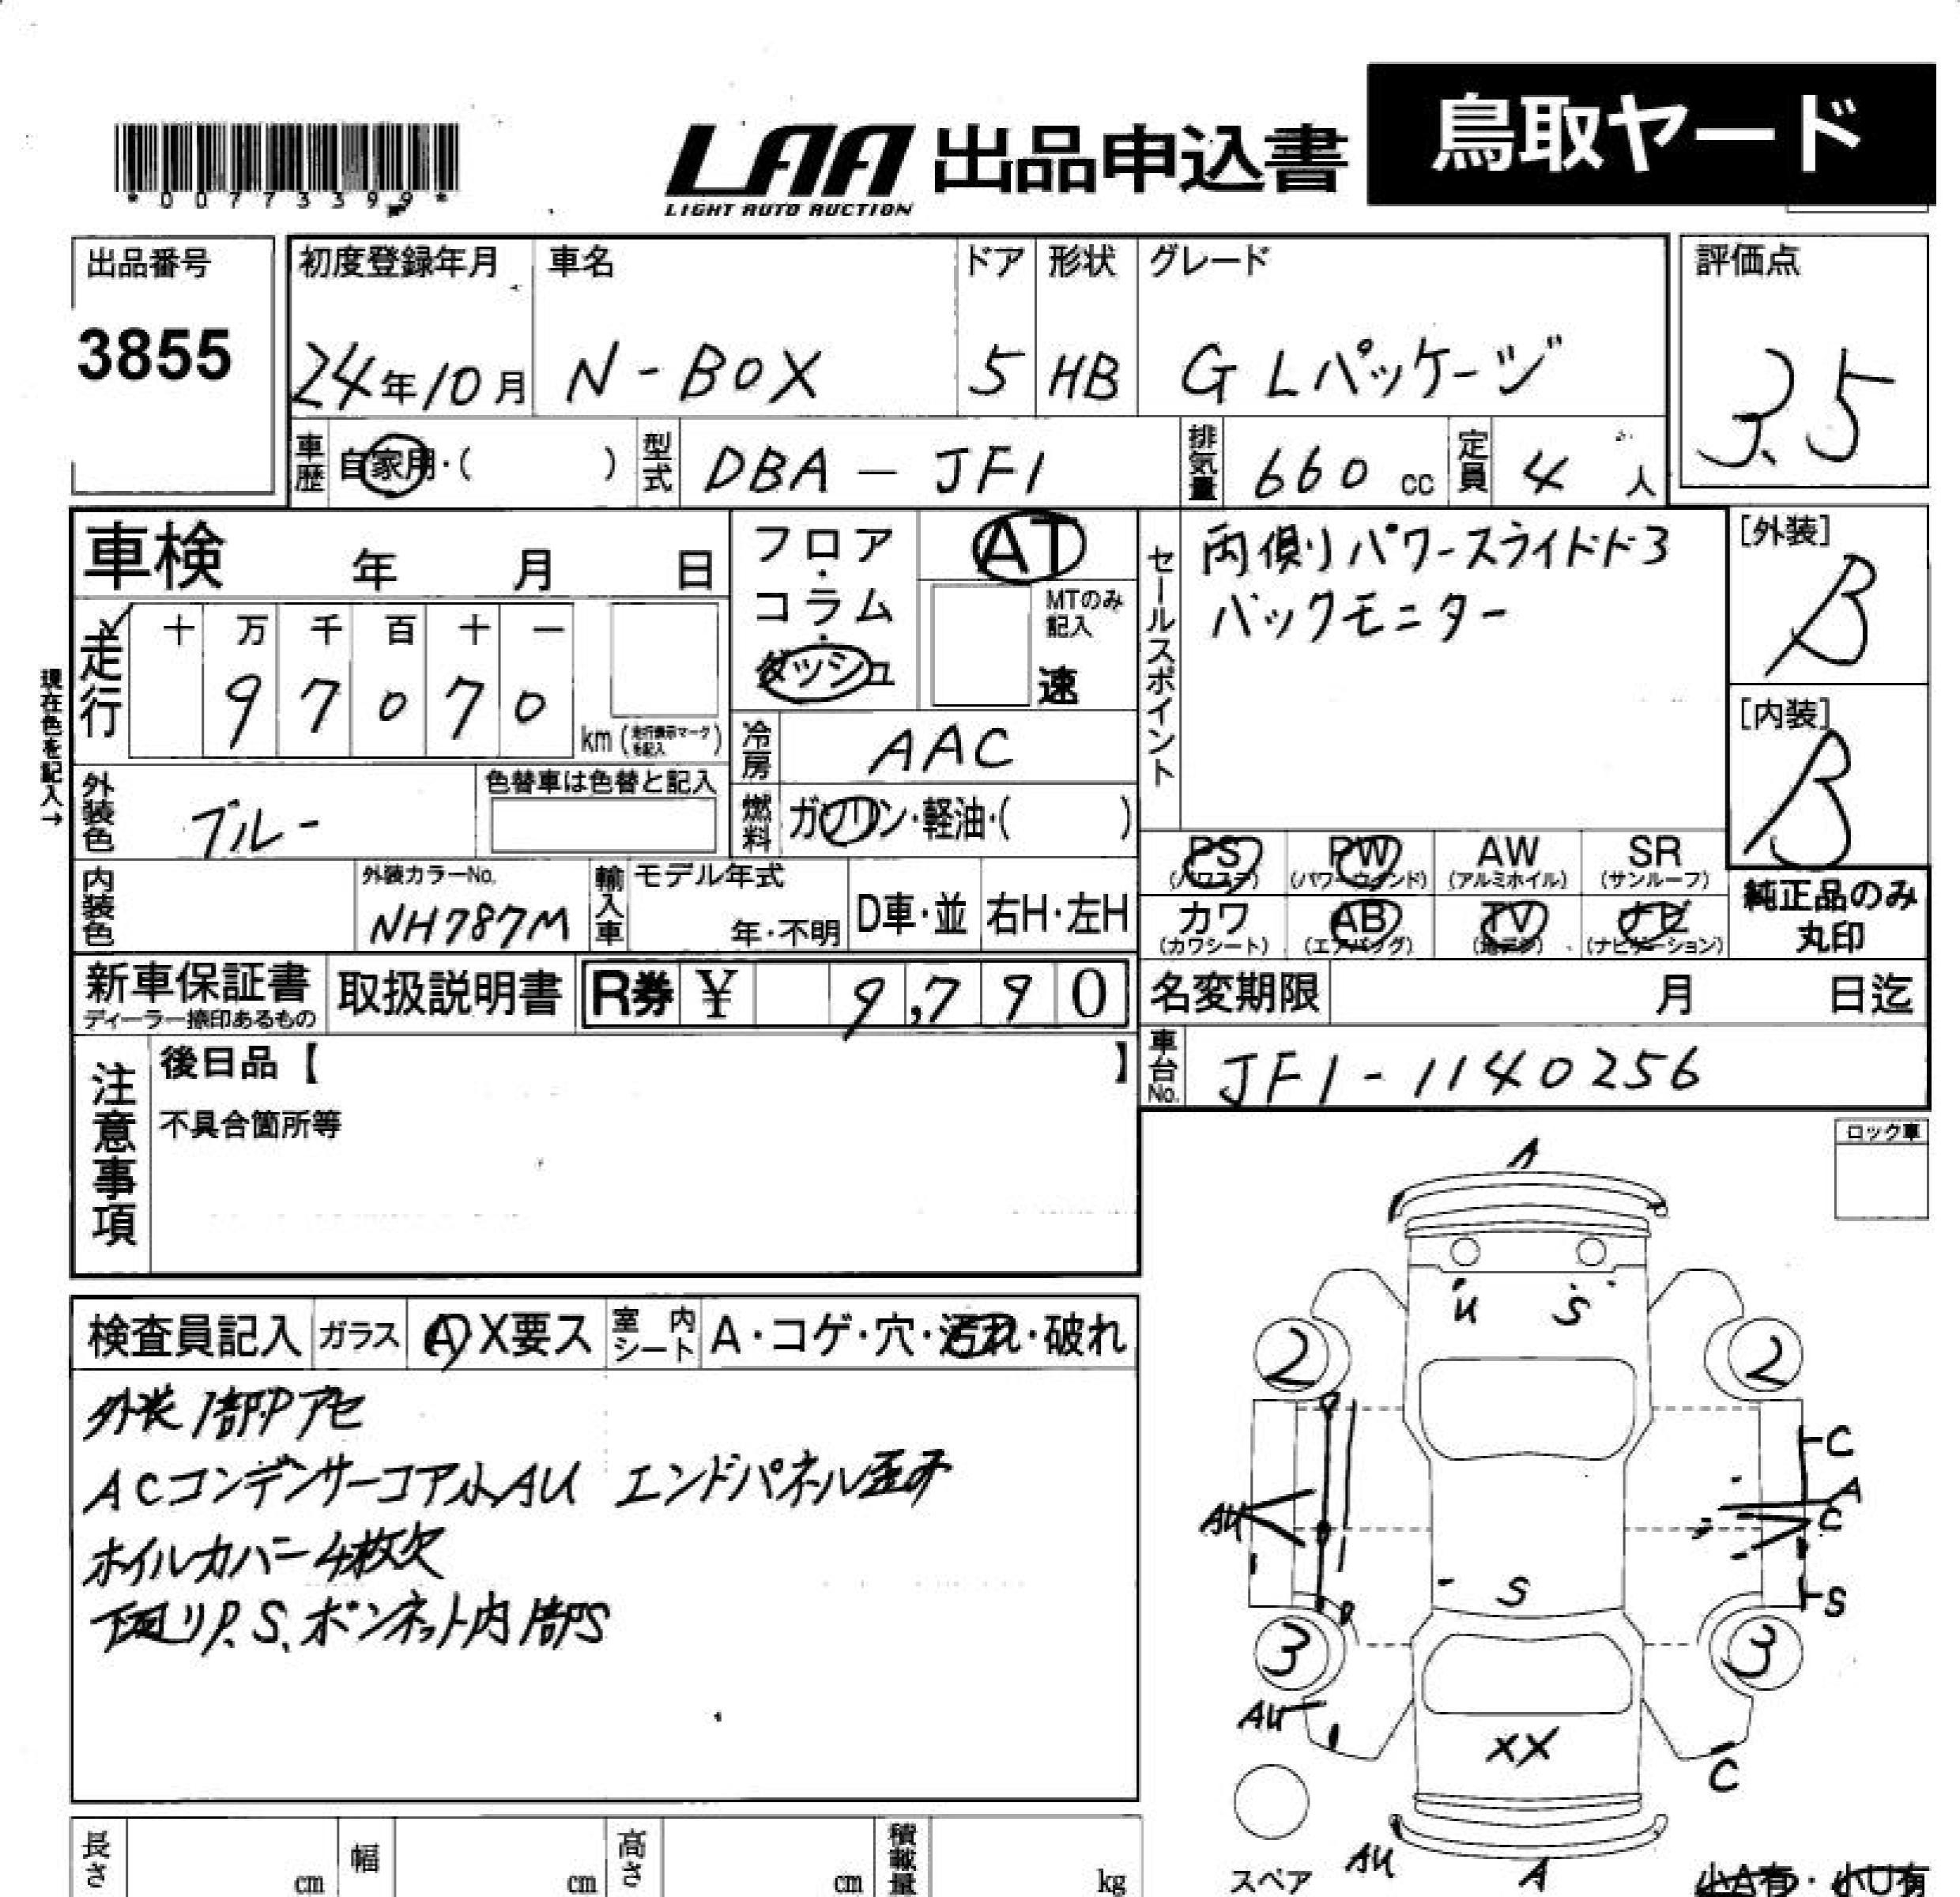 *00773399*
LAA 出品申込書 鳥取ヤード
LIGHT AUTO AUCTION
出品番号 初度登録年月 車名 ドア 形状 グレード 評価点
3855 24年10月 N-BOX 5 HB G Lパッケージ 3.5
車歴 自家用・( ) 型式 DBA-JF1 排気量 660 cc 定員 4 人
車検 年 月 日 フロア・コラム・ダッシュ AT
MTのみ記入 速
セールスポイント 両側リパワースライドド3
バックモニター
[外装] B
[内装] B
現在色を記入→
走行 十 万 千 百 十 一
97070 km (走行表示マークを記入)
冷房 AAC
外装色 ブルー 色替車は色替と記入
燃料 ガソリン・軽油・( )
PS (パワステ) PW (パワーウィンド) AW (アルミホイル) SR (サンルーフ)
カワ (カワシート) AB (エアバッグ) TV (地デジ) ナビ (ナビゲーション)
純正品のみ丸印
内装色 外装カラーNo. NH787M 輸入車 モデル年式 年・不明 D車・並 右H・左H
新車保証書 ディーラー捺印あるもの 取扱説明書 R券 ¥ 9,790
名変期限 月 日迄
車台No. JF1-1140256
注意事項 後日品【 】
不具合箇所等
ロック車
検査員記入 ガラス A X要ス 室内シート A・コゲ・穴・汚れ・破れ
外装1部Pアセ
ACコンデンサーコア小AU エンドパネル歪み
ホイルカバー4枚欠
下廻りP.S、ボンネット内1部S
A
U S
2 2
P
C
A
AU C
P
S S
P P
3 3
AU
XX
C
AU A
スペア
小A有・小U有
長さ cm 幅 cm 高さ cm 積載量 kg